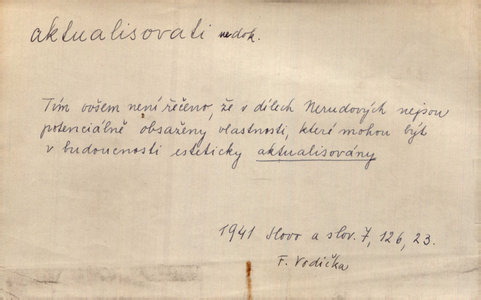 aktualisovati nedok.
Tím ovšem není řečeno, že v dílech Nerudových nejsou
potenciálně obsaženy vlastnosti, které mohou být
v budoucnosti esteticky aktualisovány
1941 Slovo a slov. 7, 126, 23.
F. Vodička